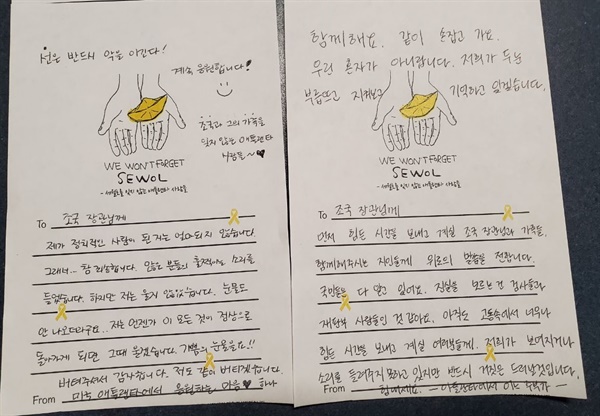 선은 반드시 악을 이긴다!
계속 응원합니다!
조국과 그의 가족을
잊지 않는 애틀랜타
사람들~♥
WE WON'T FORGET
SEWOL
-세월호를 잊지 않는 애틀랜타 사람들
To 조국 장관님께
제가 정치적인 사람이 된 거는 얼마되지 않습니다.
그래서... 참 죄송합니다. 많은 분들의 울컥하는 소리를
들었습니다. 하지만 저는 울지 않았습니다. 눈물도
안 나오더라구요.. 저는 언젠가 이 모든 것이 정상으로
돌아가게 되면 그때 울겠습니다. 기쁨의 눈물을요!!
버텨주셔서 감사합니다. 저도 같이 버티겠습니다.
From 미국 애틀랜타에서 응원하는 마음♥ 하나
함께해요. 같이 손잡고 가요.
우린 혼자가 아니랍니다. 저희가 두눈
부릅뜨고 지켜보고 기억하고 있겠습니다.
WE WON'T FORGET
SEWOL
-세월호를 잊지 않는 애틀랜타 사람들
To 조국 장관님께
먼저 힘든 시간을 보내고 계실 조국 장관님과 가족들,
함께해주시는 지인들께 위로의 말씀을 전합니다.
국민들은 다 알고 있어요. 진실을 모르는 건 검사들과
재판부 사람들인 것 같아요. 아직도 고통속에서 너무나
힘든 시간을 보내고 계실 여러분들께. 저희가 보여지거나
소리를 들려주지 못하고 있지만 반드시 거짓은 드러날것입니다.
From 힘내세요. -아틀란타에서 어느 누나가-